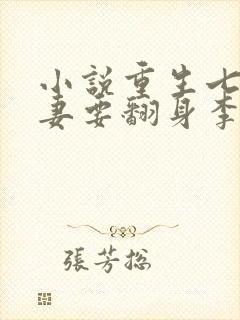 小說重生七
妻要翻身李
張芳總